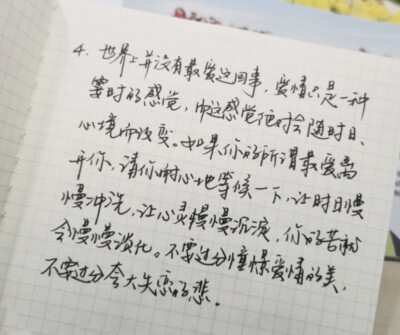 4. 世界上并没有最爱这回事，爱情只是一种
霎时的感觉，而这感觉绝对会随时日、
心境而改变。如果你的所谓最爱离
开你，请你耐心地等候一下，让时日慢
慢冲洗，让心灵慢慢沉淀，你的苦就
会慢慢淡化。不要过分憧憬爱情的美，
不要过分夸大失恋的悲。